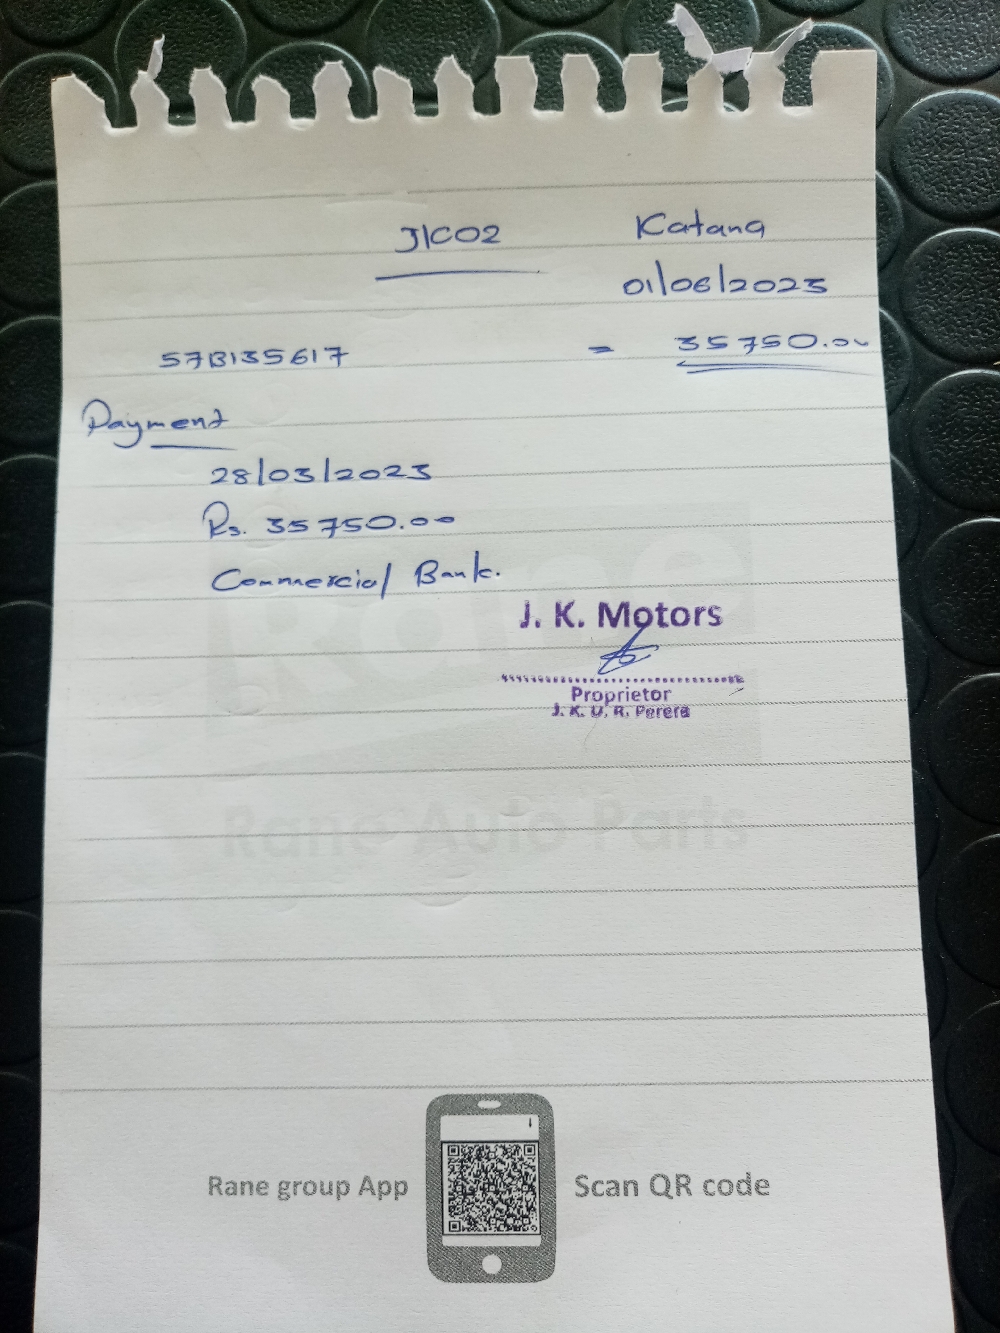 JICO2 Katana
01/06/2023
57B135617 = 35750.00
Payment
28/03/2023
Rs. 35750.00
Commercial Bank.
J. K. Motors
Proprietor
J. K. U. R. Perera
Rane
Rane Auto Parts
Rane group App Scan QR code